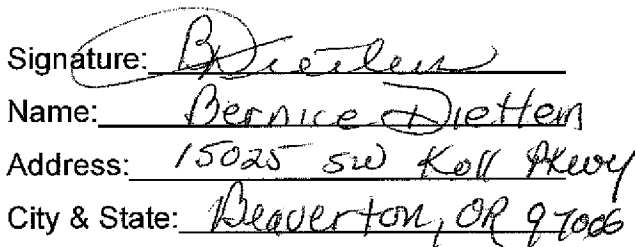 Signature: BDietlein
Name: Bernice Dietlein
Address: 15025 SW Koll Pkwy
City & State: Beaverton, OR 97006